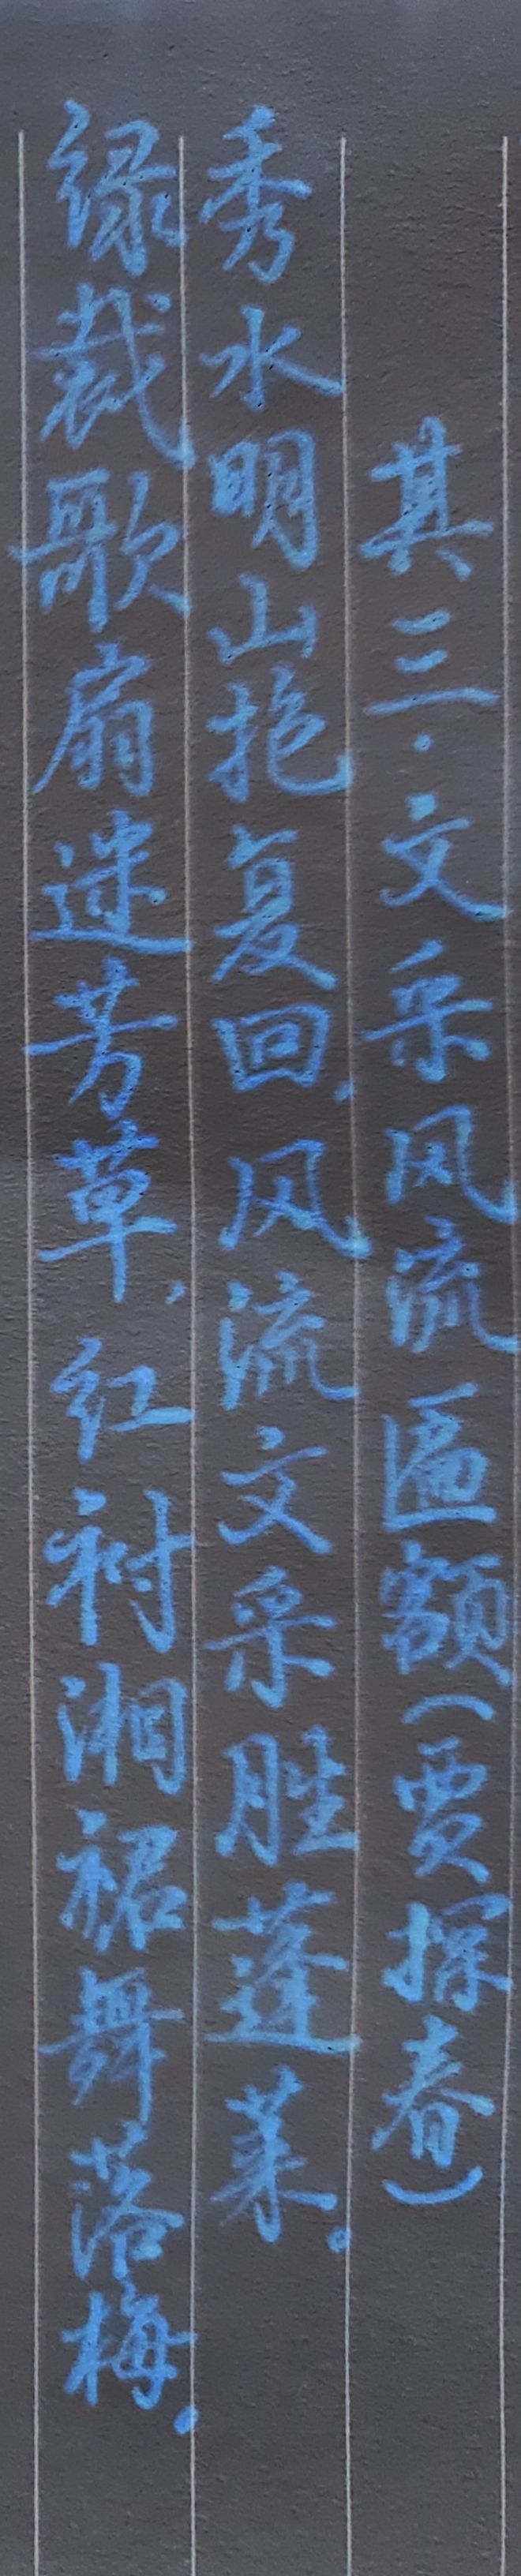 其三·文采风流匾额(贾探春)
秀水明山抱复回,风流文采胜蓬莱。
绿裁歌扇迷芳草,红衬湘裙舞落梅。